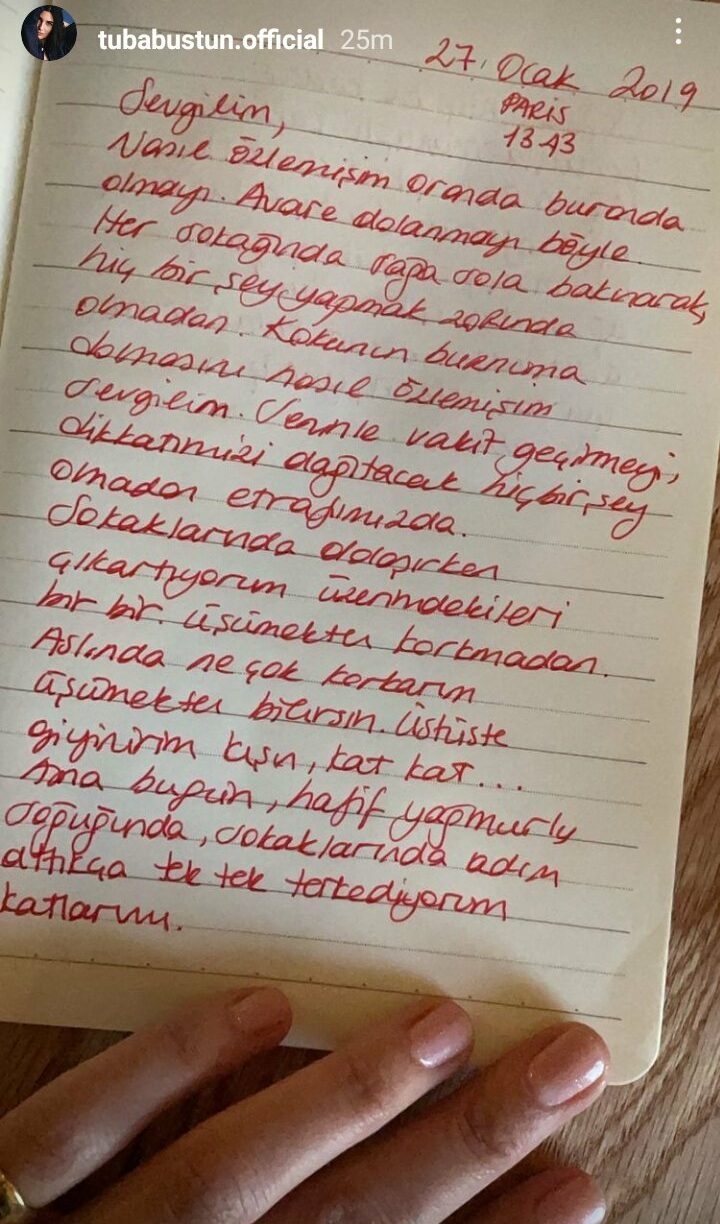 tubabustun.official 25m
27. Ocak 2019
PARİS
13.43
Sevgilim,
Nasıl özlemişim oranda buranda
olmayı. Avare dolanmayı böyle.
Her sokağında sağa sola bakınarak,
hiç bir şey yapmak zorunda
olmadan. Kokunun burnuma
dolmasını nasıl özlemişim
sevgilim. Seninle vakit geçirmeyi,
dikkatimizi dağıtacak hiçbir şey
olmadan etrafımızda.
Sokaklarında dolaşırken
çıkartıyorum üzerimdekileri
bir bir. Üşümekten korkmadan.
Aslında ne çok korkarım
üşümekten bilirsin. Üstüste
giyinirim kışın, kat kat...
Ama bugün, hafif yağmurlu
soğuğunda, sokaklarında adım
attıkça tek tek terkediyorum
katlarımı.